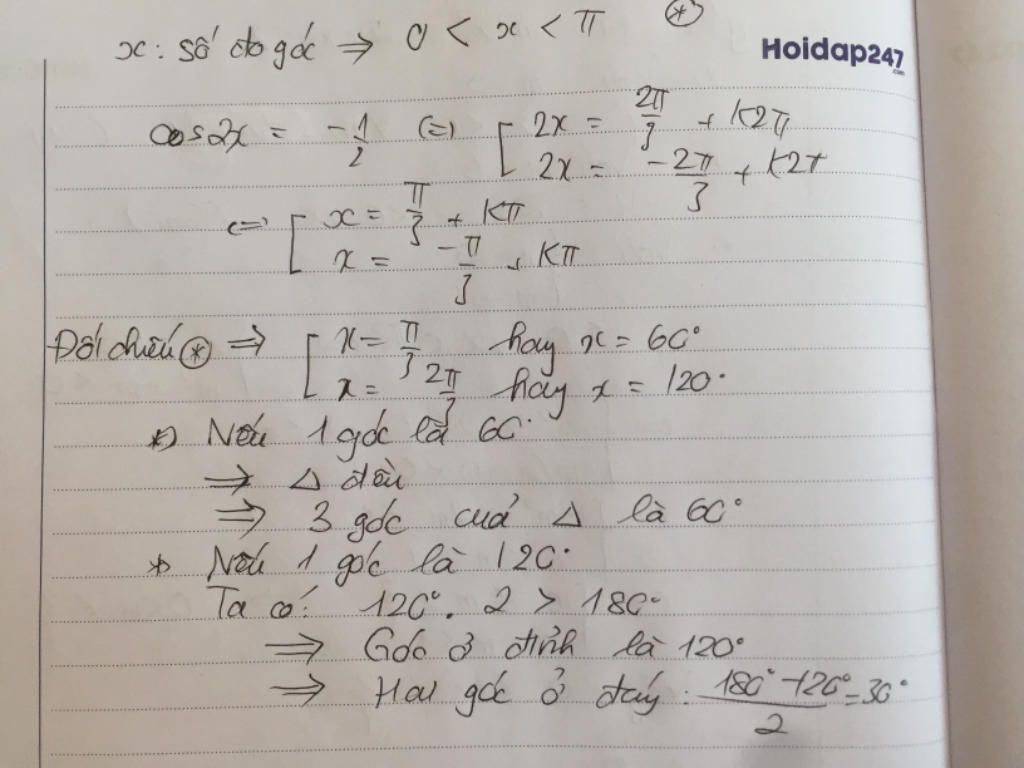 x: số đo góc ⇒ 0 < x < π (*)
Hoidap247
.com
cos2x = -1/2 (=) [ 2x = 2π/3 + K2π
2x = -2π/3 + K2π
<=> [ x = π/3 + Kπ
x = -π/3 + Kπ
Đối chiếu (*) ⇒ [ x = π/3 hay x = 60°
x = 2π/3 hay x = 120°
*) Nếu 1 góc là 60°
⇒ Δ đều
⇒ 3 góc cuả Δ là 60°
* Nếu 1 góc là 120°
Ta có: 120°. 2 > 180°
⇒ Góc ở đỉnh là 120°
⇒ Hai góc ở đáy : (180° - 120°)/2 = 30°